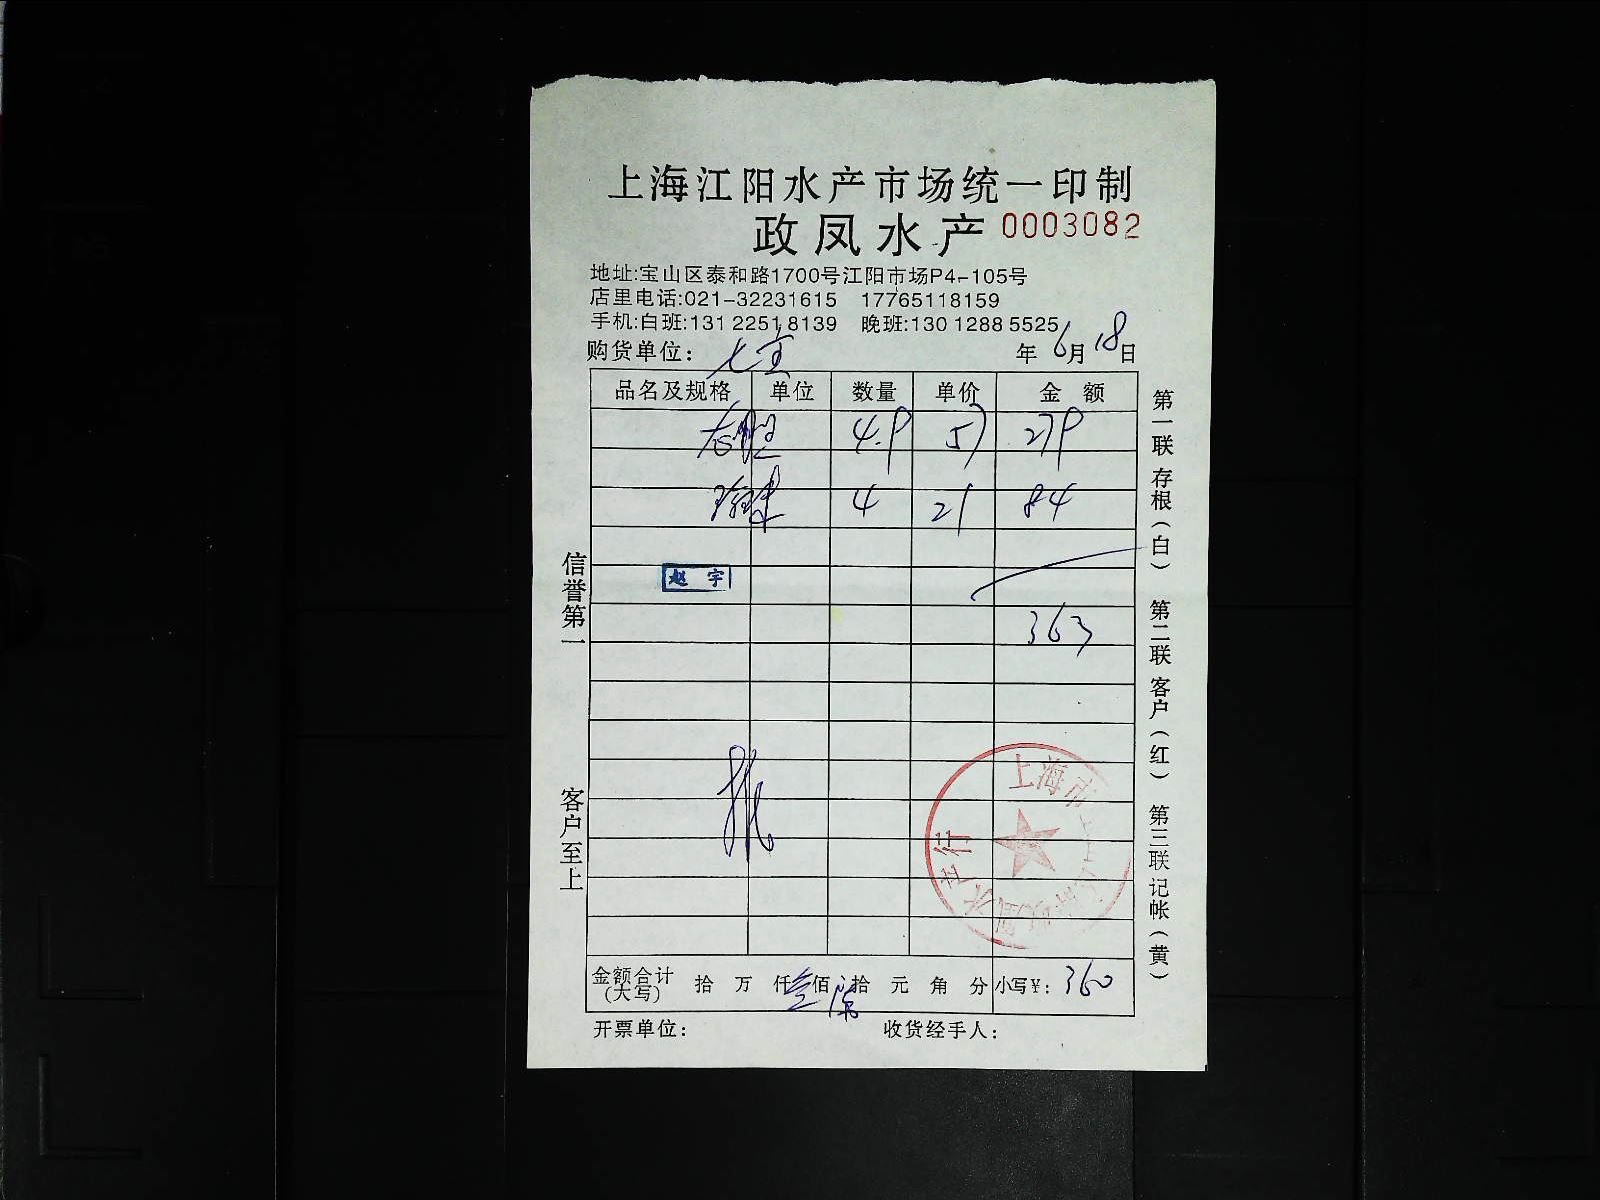 上海江阳水产市场统一印制
政凤水产 0003082
地址:宝山区泰和路1700号江阳市场P4-105号
店里电话:021-32231615 17765118159
手机:白班:131 2251 8139 晚班:130 1288 5525
购货单位: 年 6月 18日
品名及规格 单位 数量 单价 金 额
4.9 57 279
4 21 84
赵 宇
363
金额合计(大写) 拾 万 仟 佰 拾 元 角 分 小写¥: 360
开票单位: 收货经手人:
信誉第一 客户至上
第一联 存根(白) 第二联 客户(红) 第三联 记帐(黄)
上海市
水产行